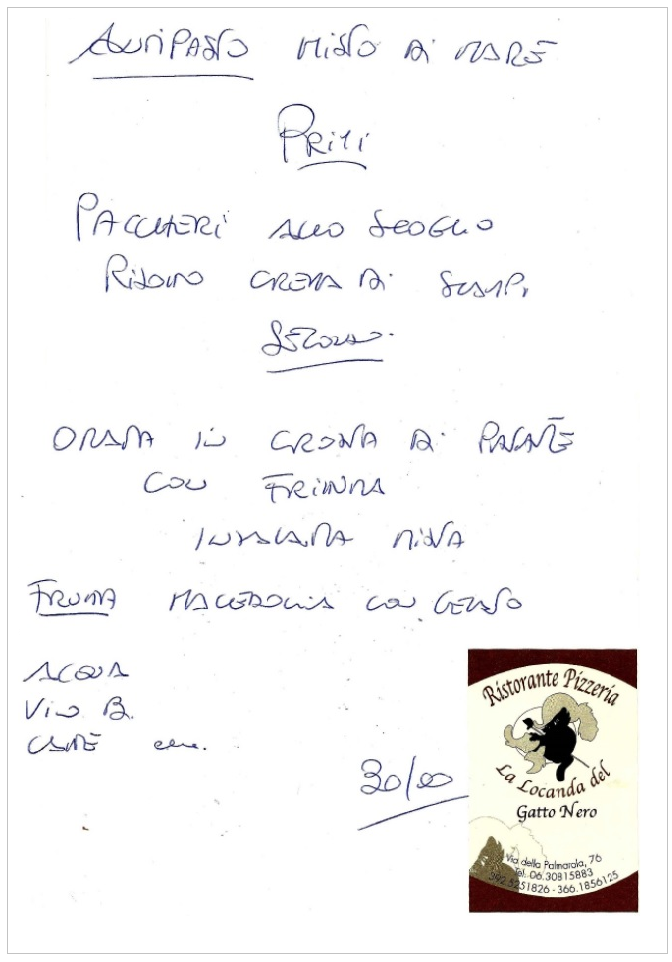 ANTIPASTO MISTO DI MARE
PRIMI
PACCHERI ALLO SCOGLIO
RISOTTO CREMA DI SCAMPI
SECONDO
ORATA IN CROSTA DI PATATE
CON FRITTURA
INSALATA MISTA
FRUTTA MACEDONIA CON GELATO
ACQUA
VINO B.
CAFFÈ
30/00
Ristorante Pizzeria
La Locanda del
Gatto Nero
Via della Palmarola, 76
Tel. 06.30815883
392.5251826 - 366.1856125